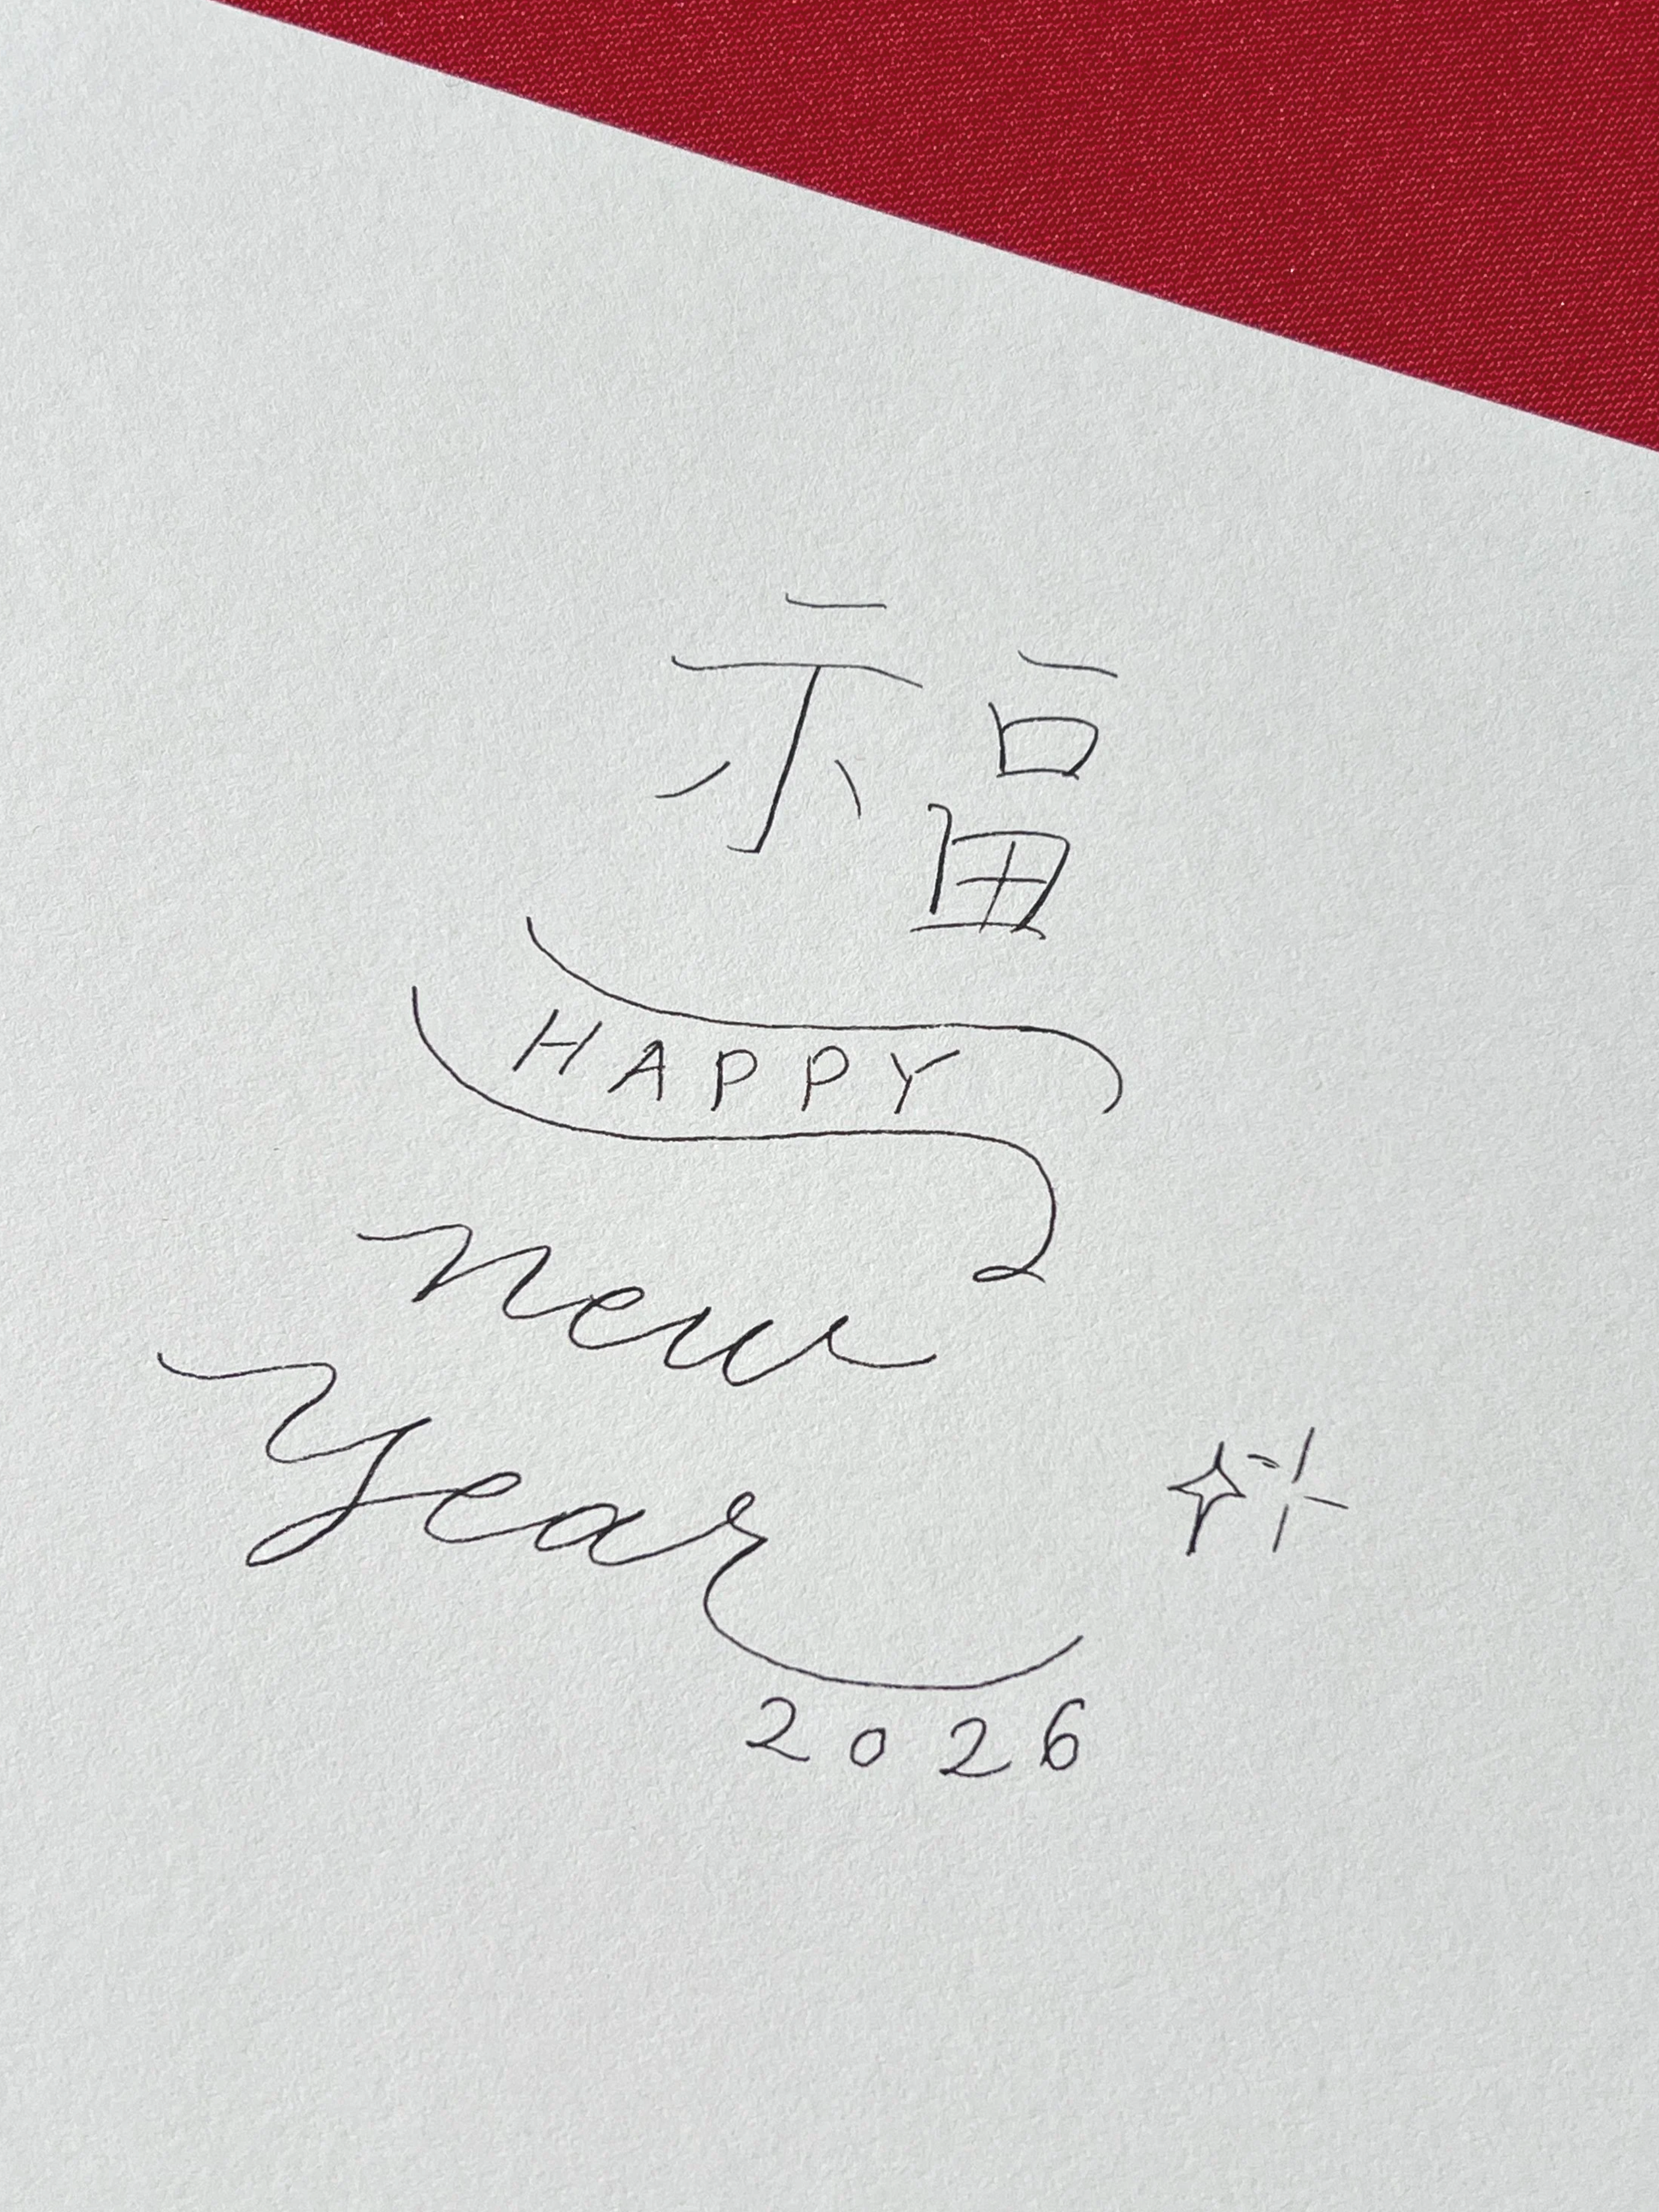 福
HAPPY
new
year
2026